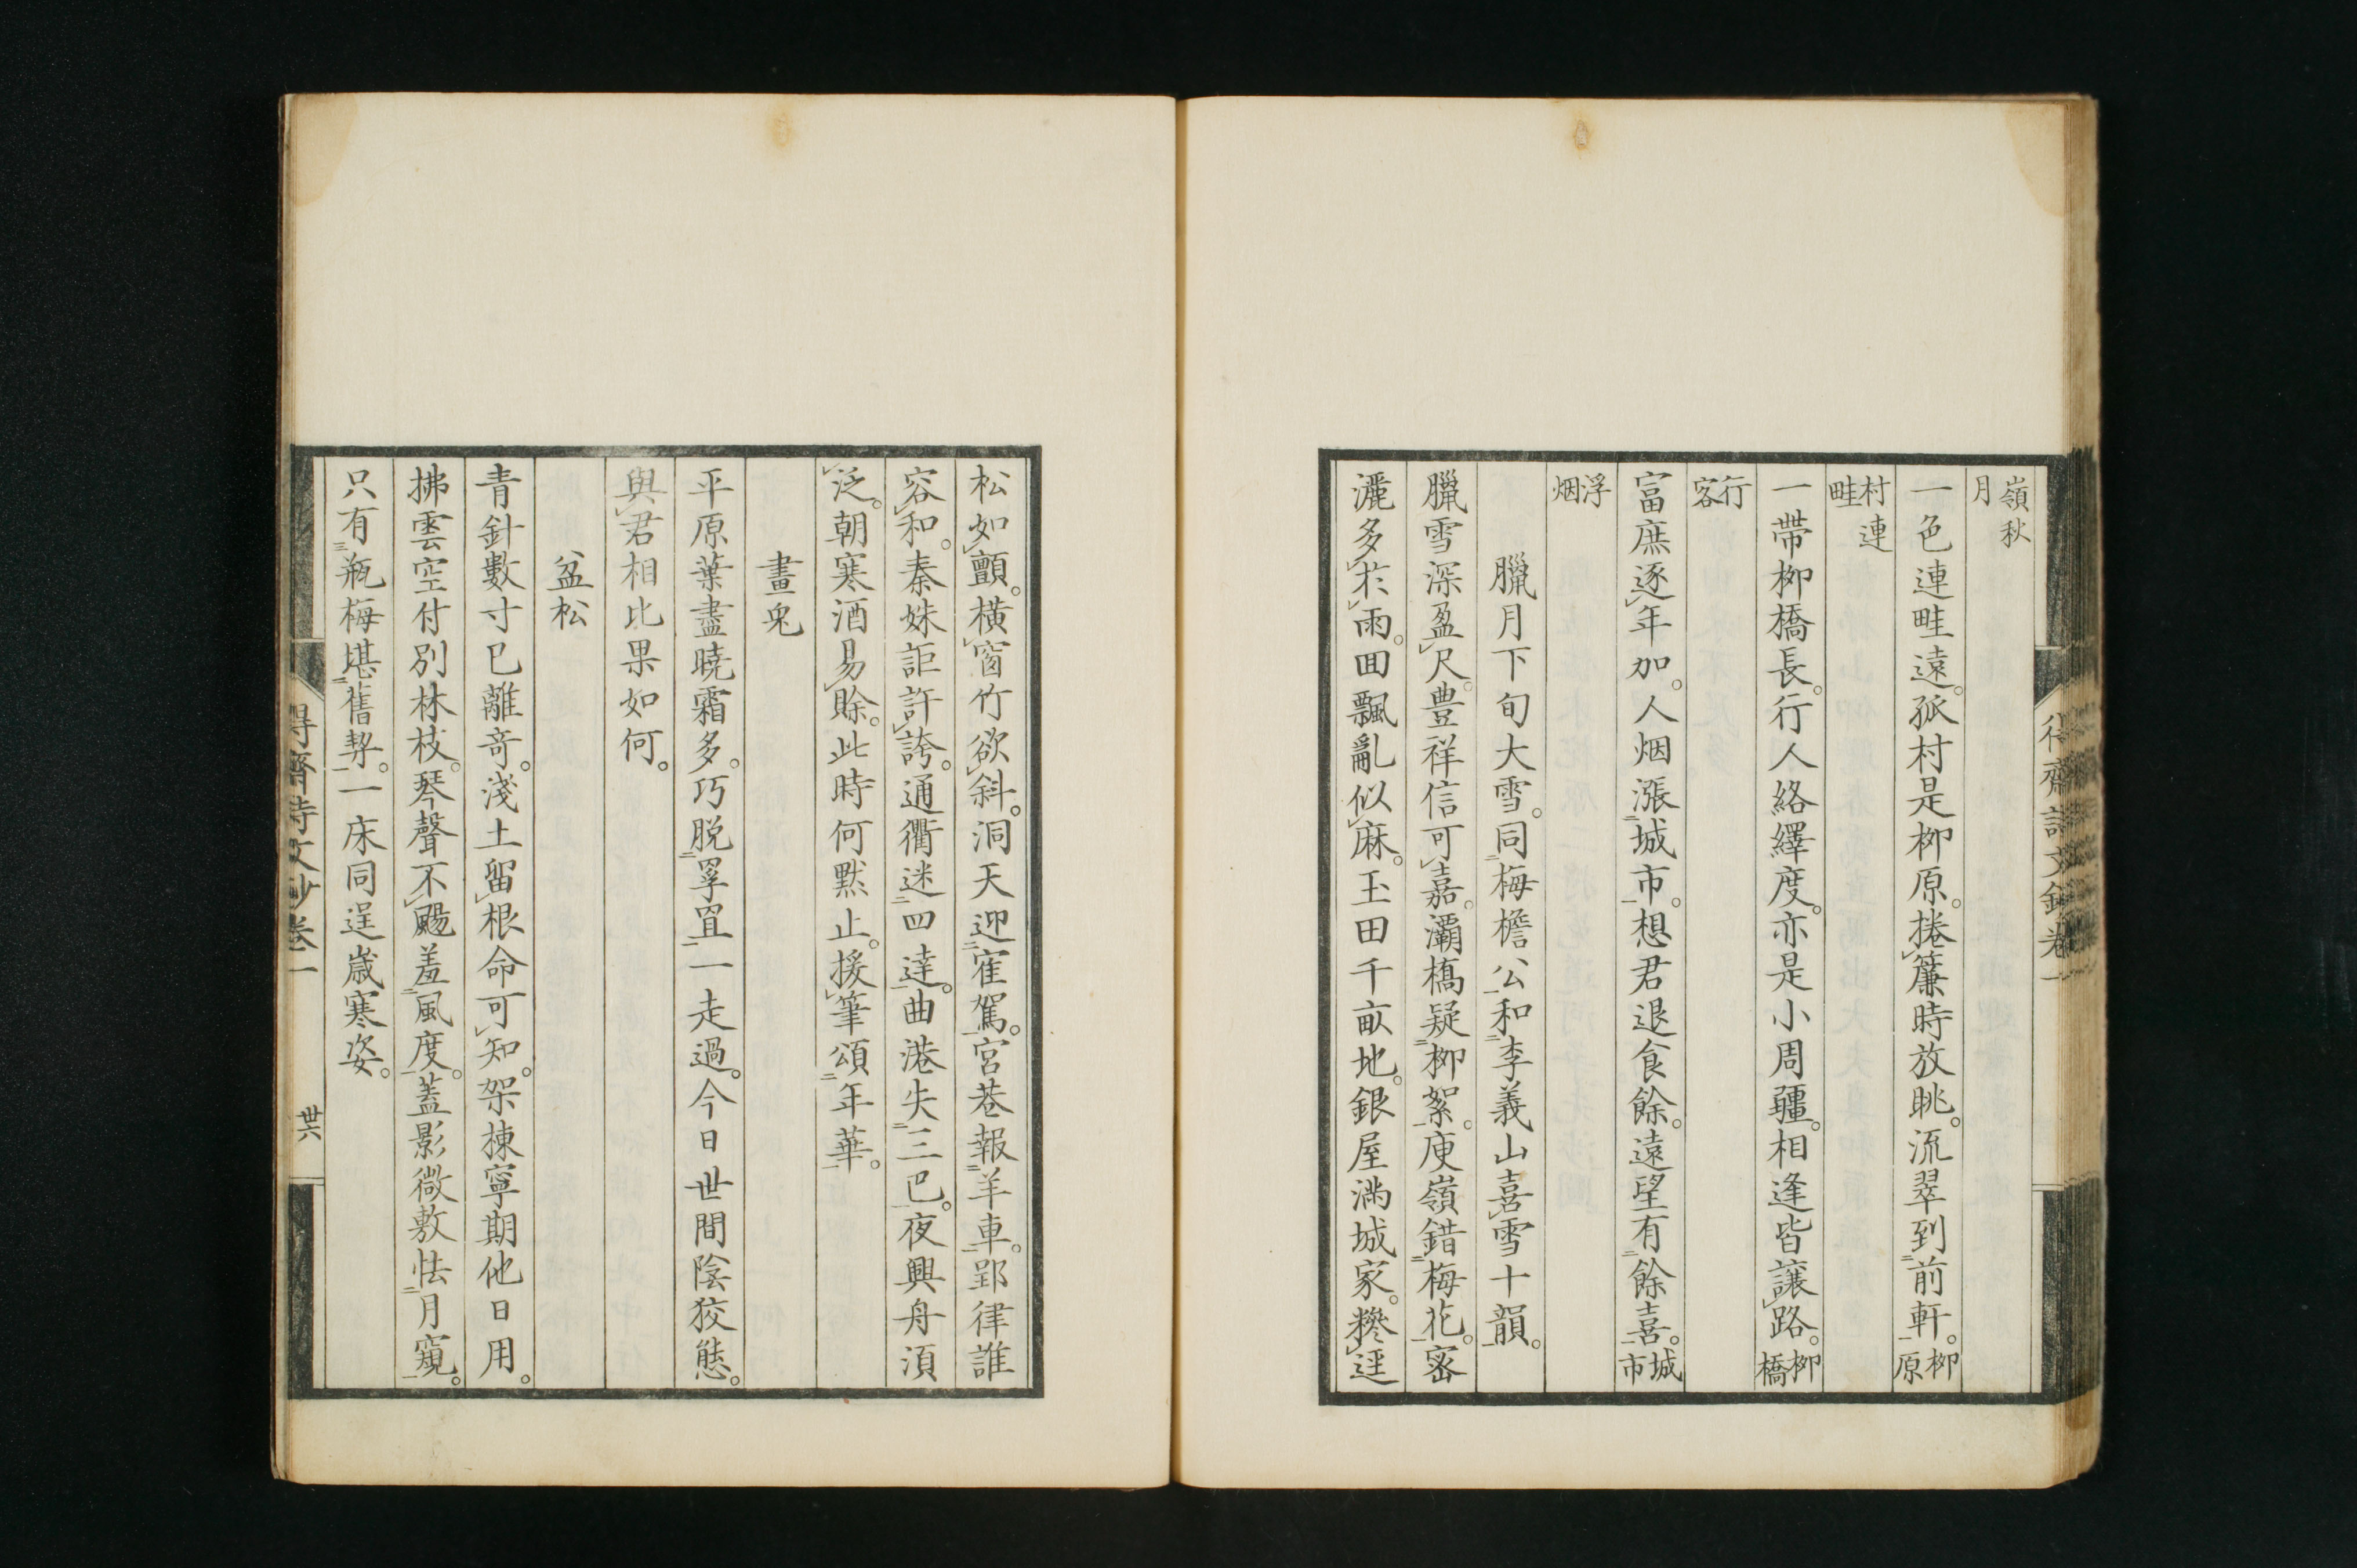 嶺秋
月
一色連畦遠。孤村是柳原。捲簾時放眺。流翠到前軒。柳原
村連
畦
一帶柳橋長。行人絡繹度。亦是小周疆。相逢皆讓路。柳橋
行
客
富庶逐年加。人烟漲城市。想君退食餘。遠望有餘喜。城市
浮
烟
臘月下旬大雪。同梅檐公和李義山喜雪十韻。
臘雪深盈尺。豊祥信可嘉。灞橋疑柳絮。庾嶺錯梅花。密
灑多於雨。回飄亂似麻。玉田千畝地。銀屋滿城家。糝逕
得齋詩文鈔卷一
松如顫。橫窗竹欲斜。洞天迎寉駕。宮巷報羊車。郢律誰
容和。秦姝詎許誇。通衢迷四達。曲港失三巴。夜興舟須
泛。朝寒酒易賒。此時何默止。援筆頌年華。
畫兎
平原葉盡曉霜多。巧脫罦罝一走過。今日世間陰狡態。
與君相比果如何。
盆松
青針數寸已離奇。淺土留根命可知。架棟寧期他日用。
拂雲空付別林枝。琴聲不颺羞風度。蓋影微敷怯月窺。
只有瓶梅堪舊契。一床同逞歲寒姿。
得齋詩文鈔卷一
廿六